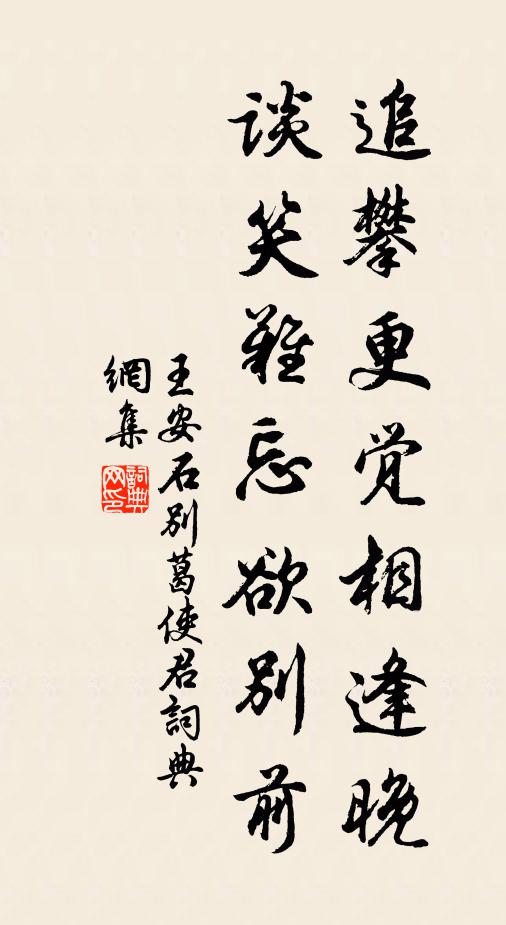 追攀更觉相逢晚
谈笑難忘欲别前
王安石别葛使君詞典
網集
詞典
网印